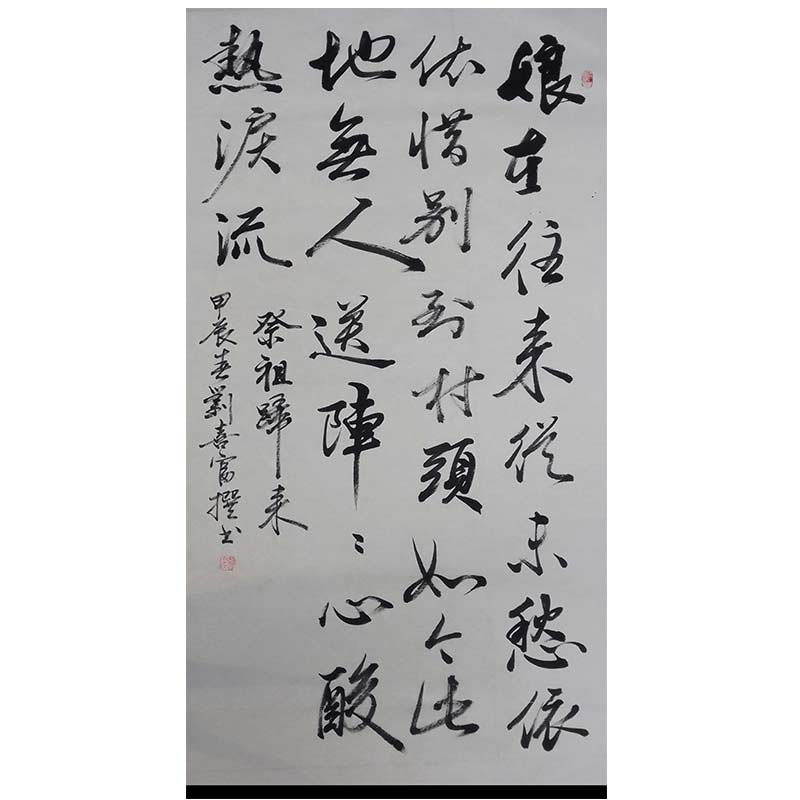 娘在往来從未愁依
依惜别到村頭如今此
地無人送陣〻心酸
熱淚流
祭祖歸来
甲辰春劉喜富撰书